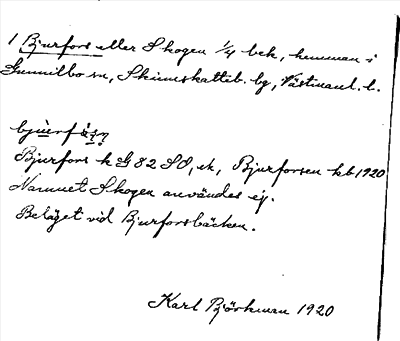 1 Bjurfors eller Skogen 1/4 bek, hemman i
Gunnilbo sn, Skinnskatteb. bg, Västmanl. l.
bjùrfá̱s̱ṉ
Bjurfors k G 82 SO, ek, Bjurforsen kb 1920
Namnet Skogen användes ej.
Beläget vid Bjurforsbäcken.
Karl Björkman 1920